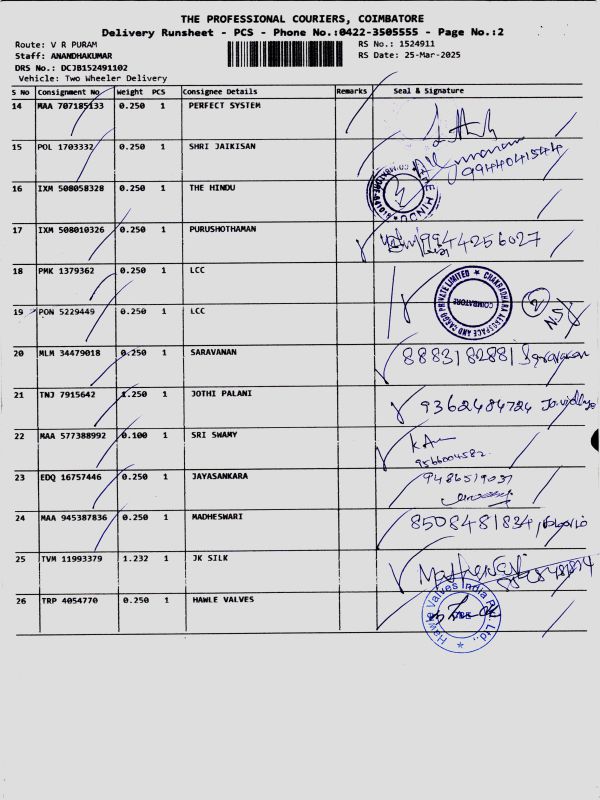 THE PROFESSIONAL COURIERS, COIMBATORE
Delivery Runsheet - PCS - Phone No.:0422-3505555 - Page No.:2
Route: V R PURAM
RS No.: 1524911
Staff: ANANDHAKUMAR
RS Date: 25-Mar-2025
DRS No.: DCJB152491102
Vehicle: Two Wheeler Delivery
S No Consignment No Weight PCS Consignee Details Remarks Seal & Signature
14 MAA 707185133 0.250 1 PERFECT SYSTEM
15 POL 1703332 0.250 1 SHRI JAIKISAN
9944041544
16 IXM 508058328 0.250 1 THE HINDU
THE HINDU
17 IXM 508010326 0.250 1 PURUSHOTHAMAN 9944256027
18 PMK 1379362 0.250 1 LCC
CHAKRADHARA AEROSPACE AND CARGO PRIVATE LIMITED
COIMBATORE
2
19 PON 5229449 0.250 1 LCC
20 MLM 34479018 0.250 1 SARAVANAN 8883182881 Saravanan
21 TNJ 7915642 1.250 1 JOTHI PALANI 9362484724
22 MAA 577388992 0.100 1 SRI SWAMY
9566004582
23 EDQ 16757446 0.250 1 JAYASANKARA 9486519031
24 MAA 945387836 0.250 1 MADHESWARI 8508481834
25 TVM 11993379 1.232 1 JK SILK
26 TRP 4054770 0.250 1 HAWLE VALVES
Hawle Valves India Pvt. Ltd.,